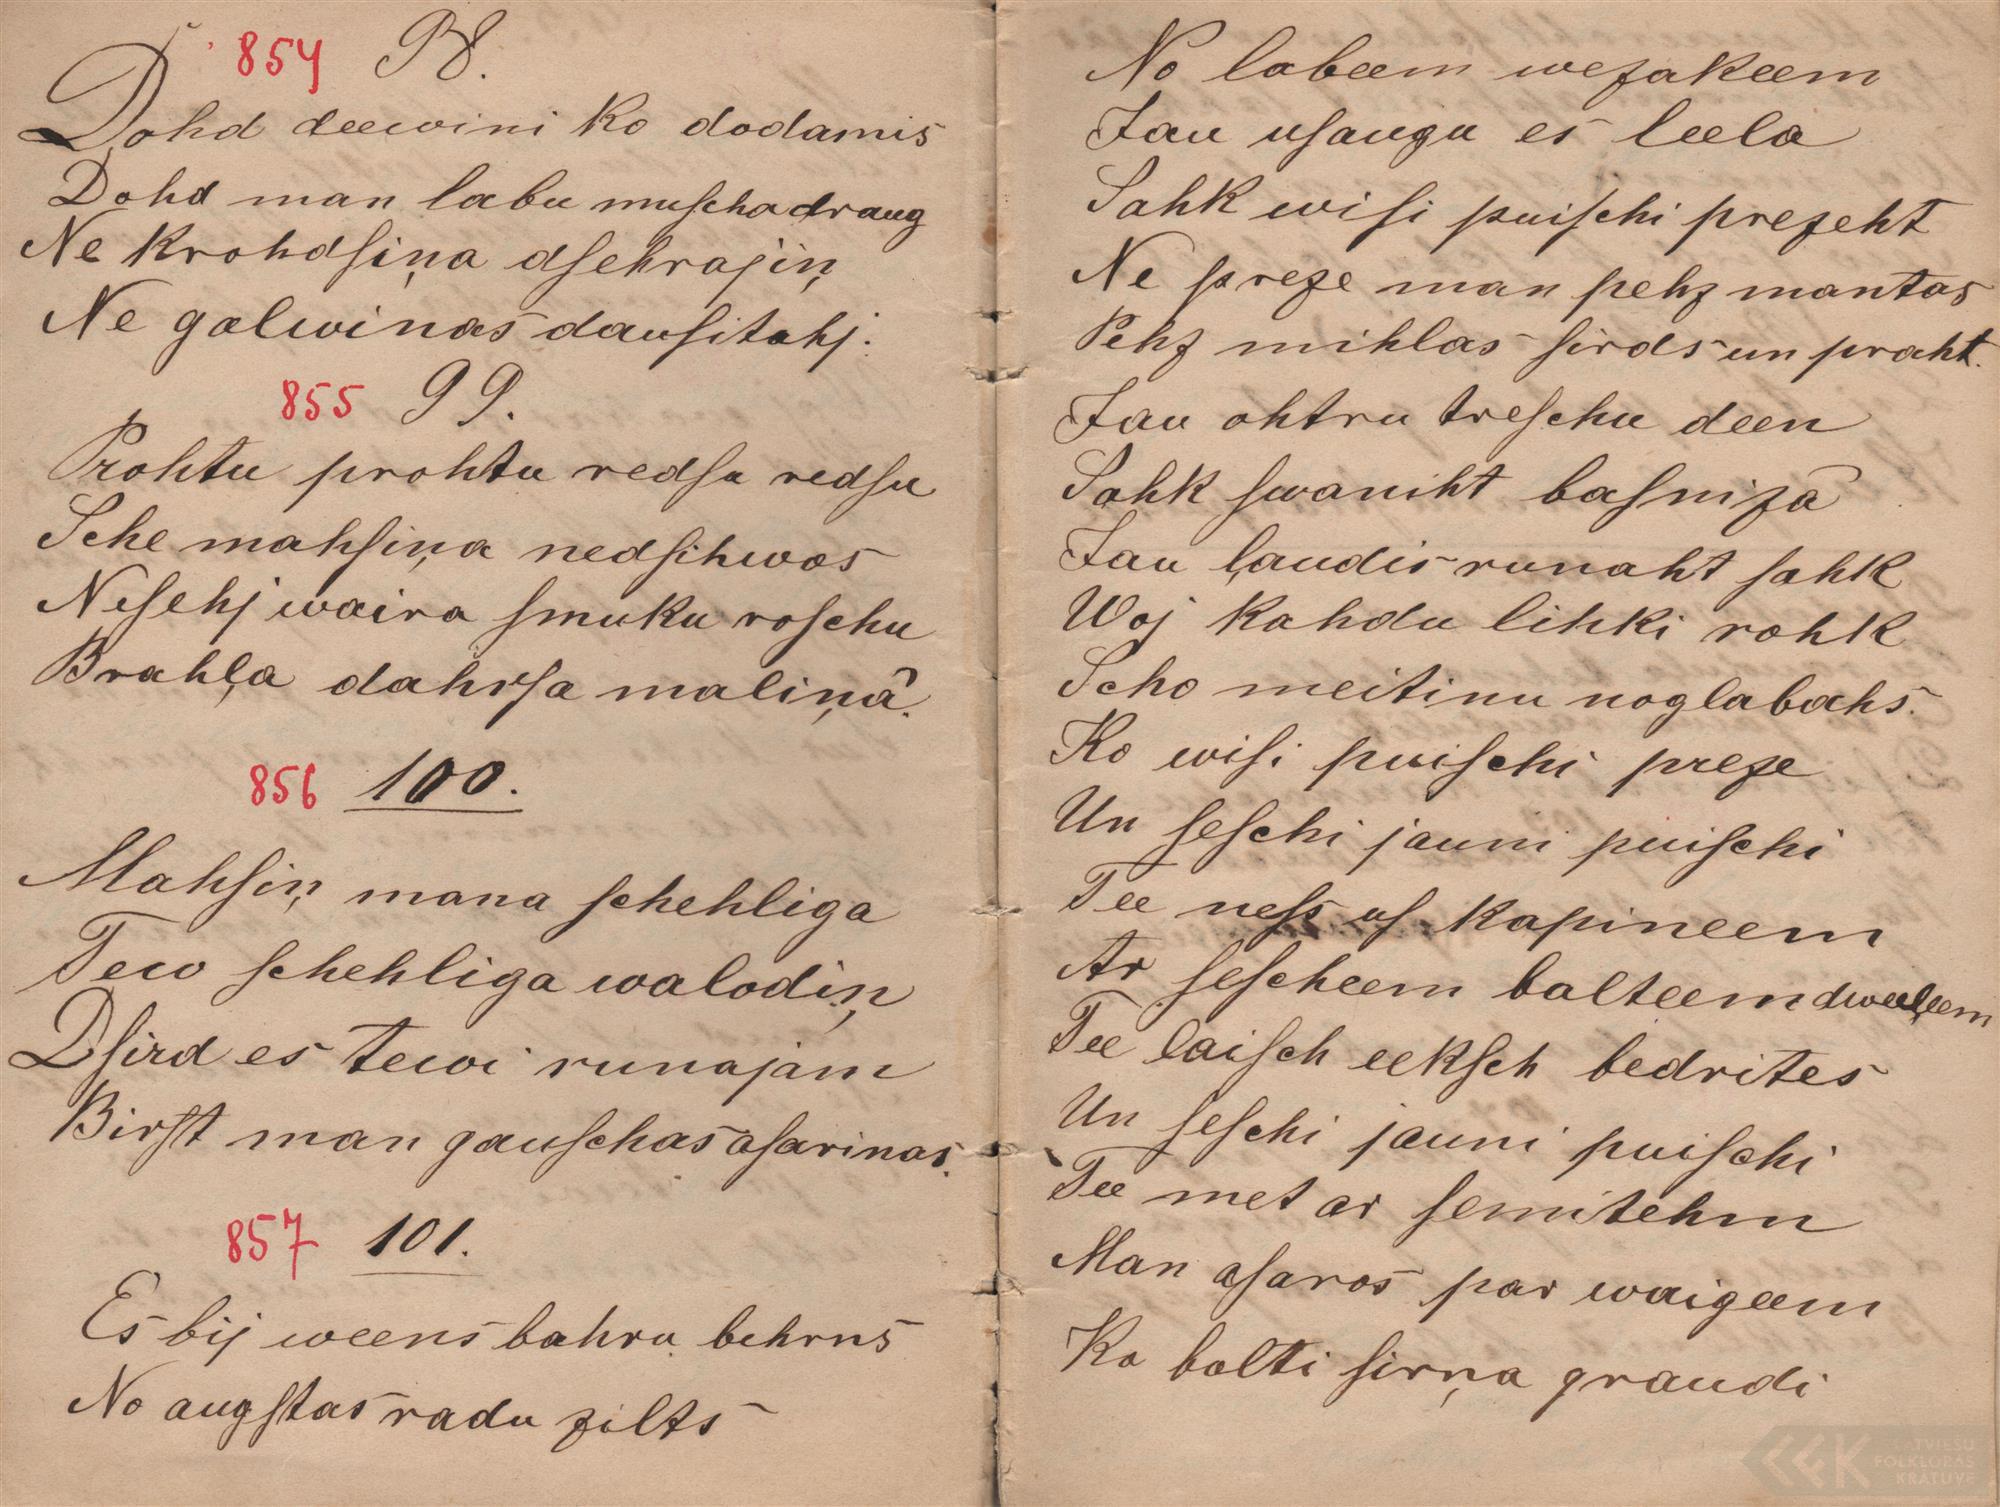 854 98.
Dohd deewini ko dodamis
Dohd man labu muscha draug
Ne krohdsiņa dsehrajiņ
Ne galwiņas dausitahj.
855 99.
Prohtu prohtu redsu redsu
Sche mahsiņa nedsihwos
Nesehj waira smuku roschu
Brahļa dahrsa maliņâ.
856 100.
Mahsiņ mana schehliga
Tew schehliga walodiņ
Dsird es tewi runajam
Birst man gauschas asarinas.
857 101.
Es bij weens bahru behrns
No augstas radu zilts
No labeem wezakeem
Jau usaugu es leela
Sahk wisi puischi prezeht
Ne preze man pehz mantas
Pehz mihlas sirds un praht.
Jau ohtru treschu deen
Sahk swaniht basnizâ
Jau ļaudis runaht sahk
Woj kahdu lihki rohk
Scho meitinu noglabahs.
Ko wisi puischi preze
Un seschi jauni puischi
Tee ness us kapineem
Ar sescheem balteem dweeļeem
Tee laisch eeksch bedrites
Un seschi jauni puischi
Tee met ar semitehm
Man asaros par waigeem
Ka balti sirņa graudi
LATVIEŠU
FOLKLORAS
KRĀTUVE